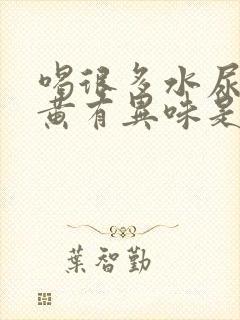 喝很多水尿
黄有異味是
葉智勤